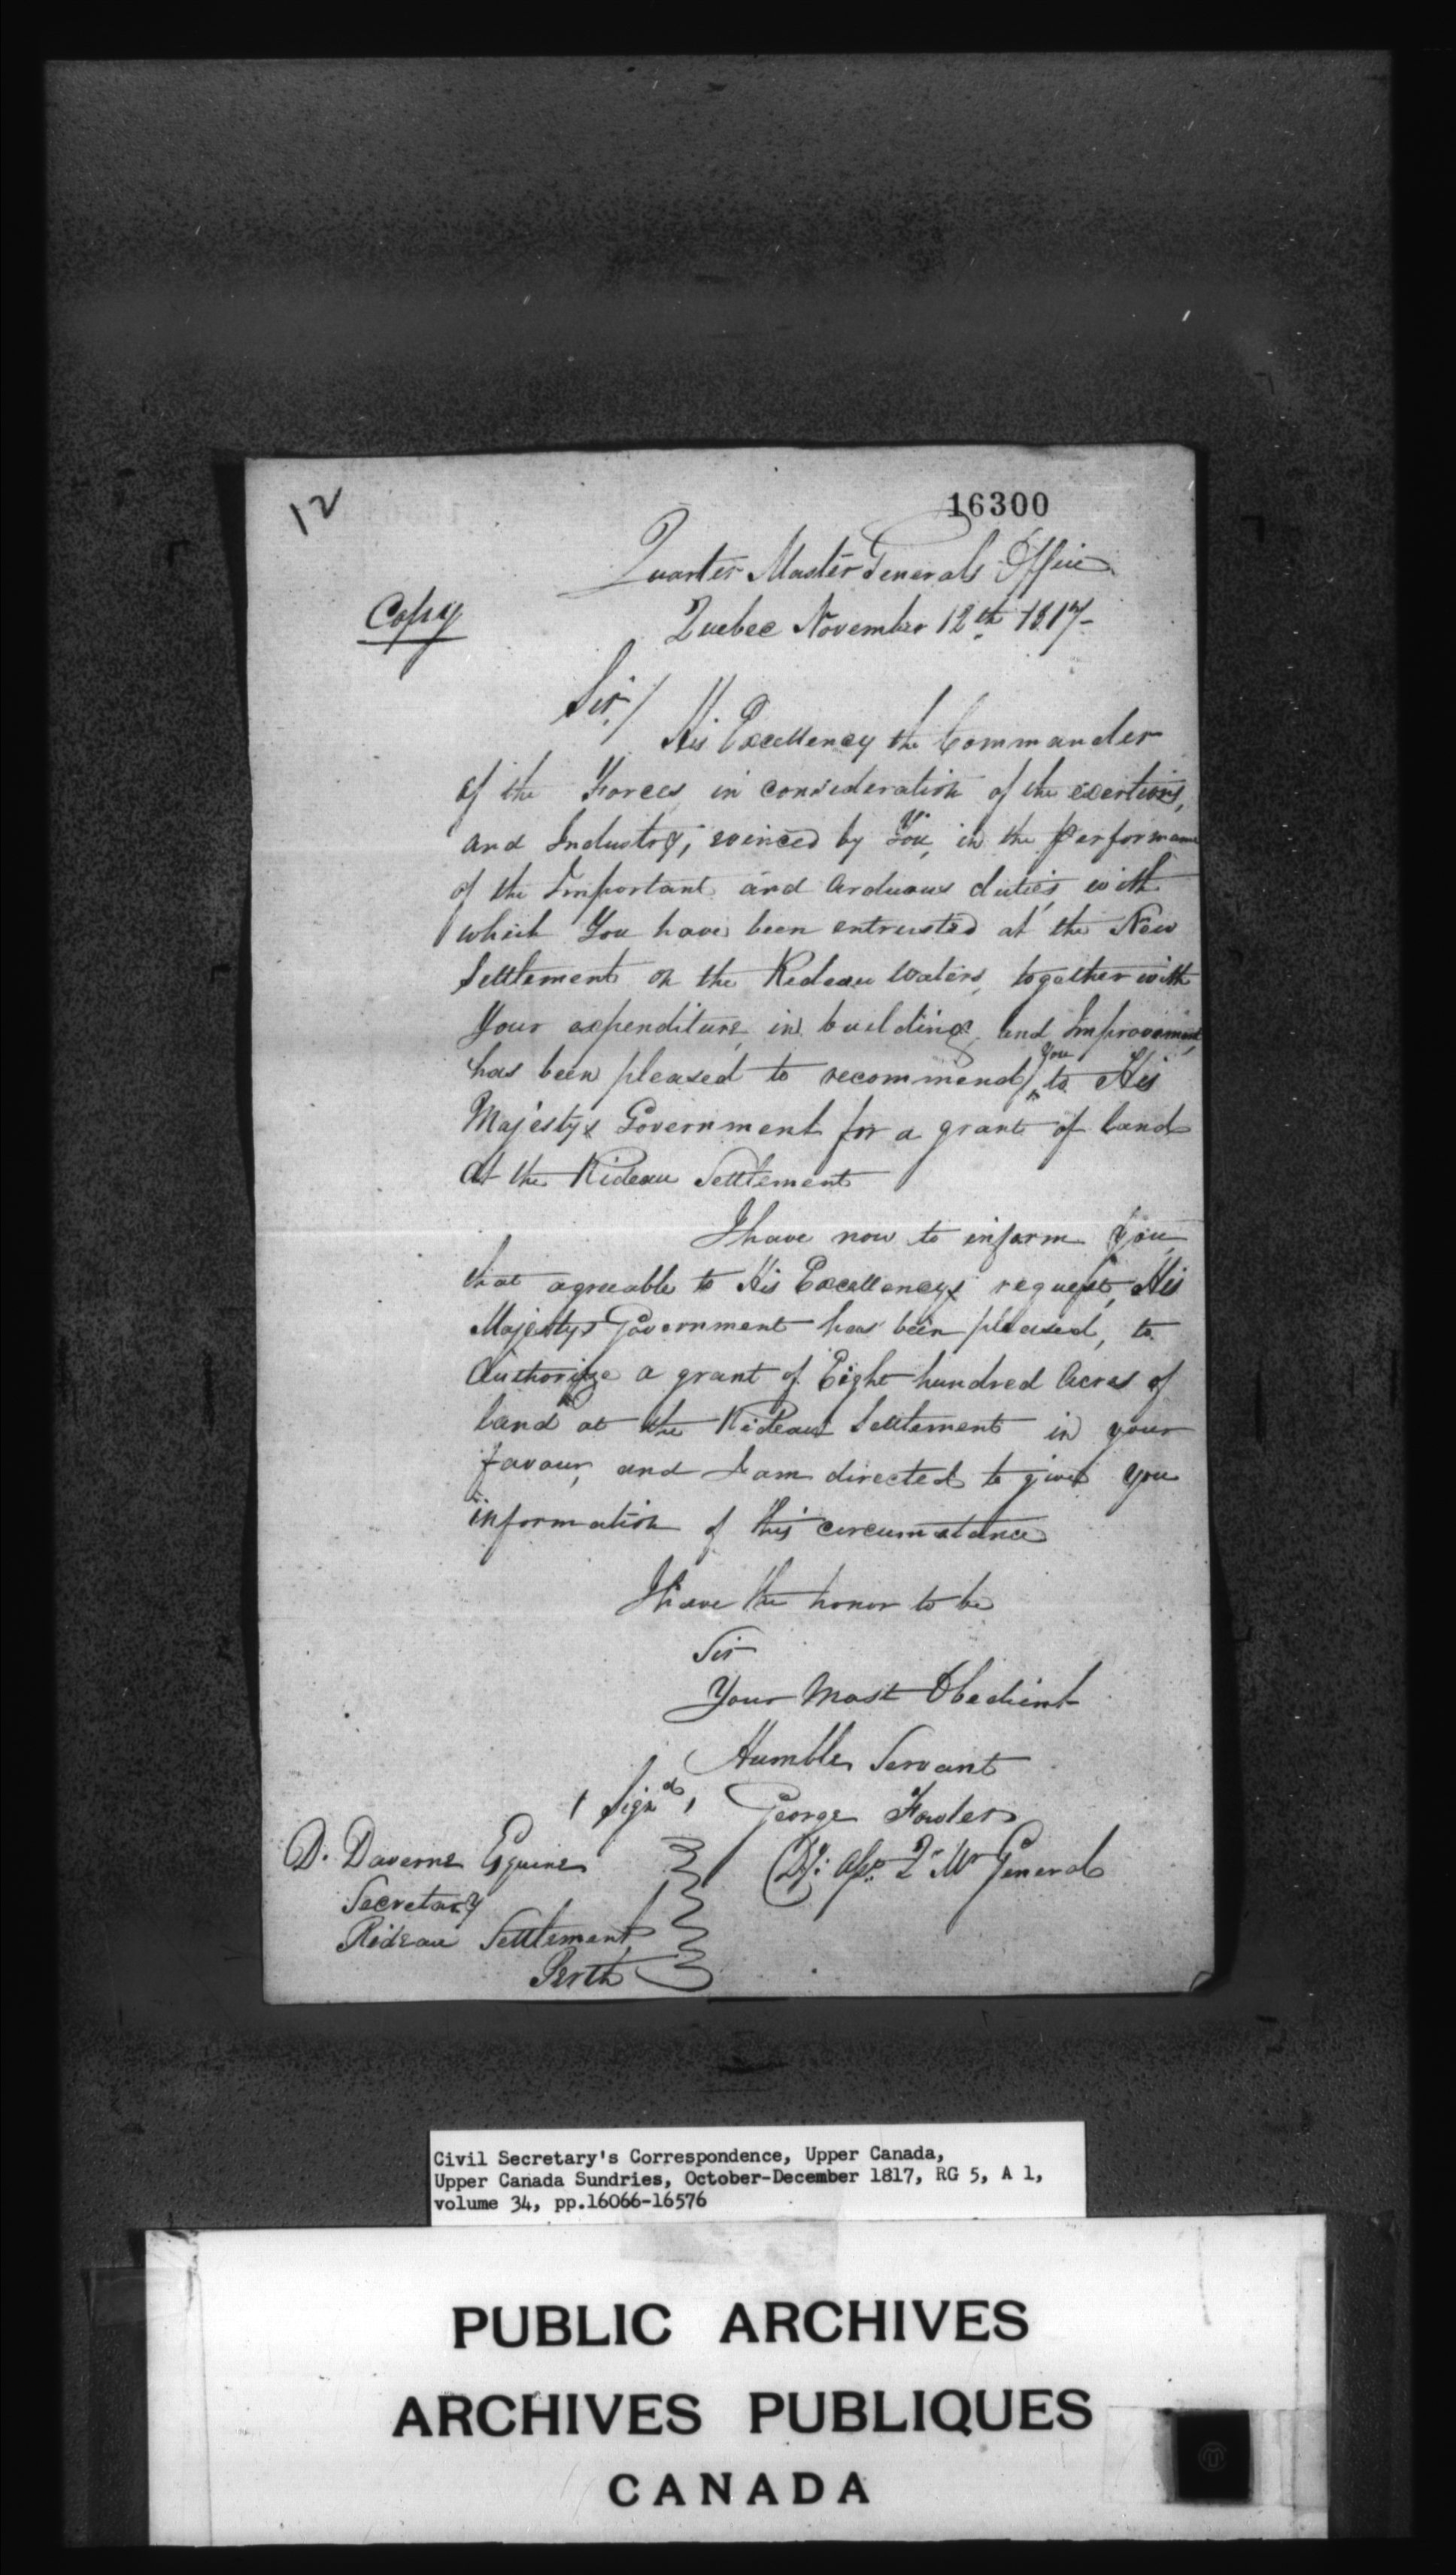 12
16300
Quarter Master Generals Office
Copy
Quebec November 12th 1817-
Sir/
His Excellency the Commander
of the Forces in consideration of the exertions,
and Industry, evinced by You, in the performance
of the Important and Arduous duties with
which You have been entrusted at the New
Settlement on the Redeau Waters, together with
Your expenditure in building and Improvement
has been pleased to recommend you to His
Majestys Government for a grant of land
at the Rideau Settlement
I have now to inform You
that agreeable to His Excellencys request, His
Majestys Government has been pleased, to
Authorize a grant of Eight hundred Acres of
land at the Rideau Settlement in your
favour, and I am directed to give you
information of this circumstance
I have the honor to be
Sir
Your Most Obedient
Humble Servant
( Signd ) George Fowler
D. Daverne Esquire
Dy: Asst Qr Mr General
Secretary
Rideau Settlement
Perth
Civil Secretary's Correspondence, Upper Canada,
Upper Canada Sundries, October-December 1817, RG 5, A 1,
volume 34, pp.16066-16576
PUBLIC ARCHIVES
ARCHIVES PUBLIQUES
CANADA